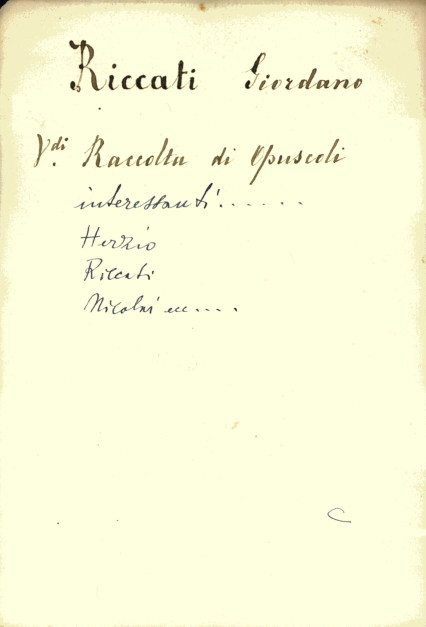 Riccati Giordano
V.di Raccolta di Opuscoli
interessanti......
Herzio
Riccati
Nicolai ecc....
C